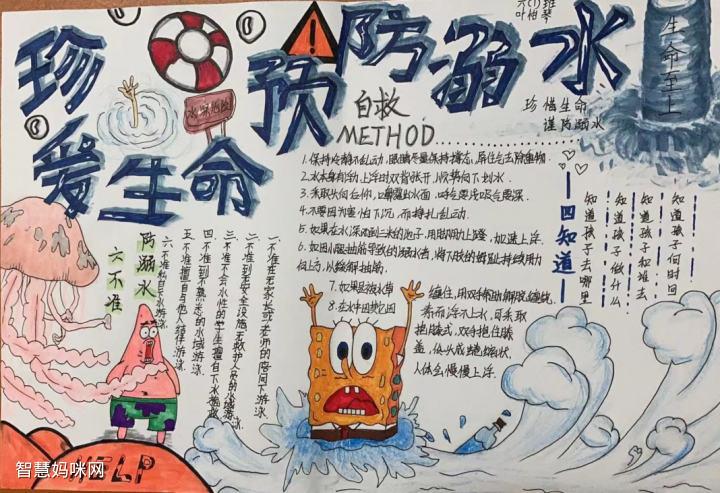 珍爱生命
预防溺水
六(1)班
叶柏琴
生命至上
珍惜生命
谨防溺水
水深危险
自救
METHOD
1. 保持冷静不乱动,眼睛尽量保持撑态,屏住气去除重物.
2. 水未身利的上浮时双臂张开,顺势向下划水.
3. 采取头向后仰,口鼻露出水面,呼气要浅吸气要深.
4. 不要因为害怕下沉,而挣扎乱动.
5. 如果在水深两到三米的池子,用脚用力上蹬,加速上浮.
6. 如因小腿抽筋导致的溺水去,将下肢的拇趾持续用力
向上方,以缓解抽筋.
7. 如果是被水草
缠住,用双手帮助解脱缠绕
8. 在水中因
而浮不上水,可采取
抱膝式,双手抱住膝
盖,低头成蜷缩状,
人体会慢慢上浮.
四知道
知道孩子去哪里
知道孩子做什么
知道孩子和谁去
知道孩子何时回
防溺水
六不准
一不准在无家长或老师的陪同下游泳
二不准到无安全设施无救护人员的水域游泳
三不准不会水性的学生擅自下水施救
四不准到不熟悉的水域游泳
五不准擅自与他人结伴游泳
六不准私自下水游泳
HELP
智慧妈咪网